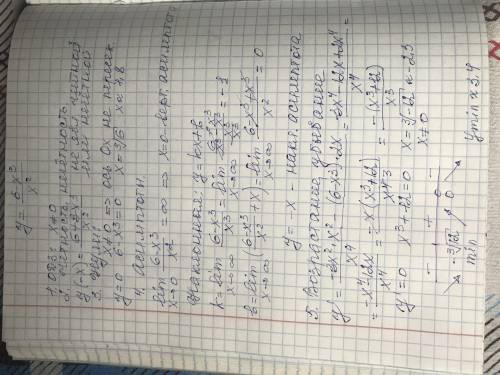 y = 6-x³/x²
1. ОДЗ: x≠0
2. четность, нечетность
y(-x) = 6+x³/x² не явл. четной или нечетной
3. нули
x≠0 ⇒ ось Оу не пересек.
y=0 6-x³=0 x=∛6 x≈1,8
4. асимптоты.
lim x→0 6-x³/x² = ∞ ⇒ x=0 - верт. асимптота
наклонная: y=kx+b
k = lim x→∞ 6-x³/x³ = lim x→∞ 6/x³ - x³/x³ / x³/x³ = -1
b = lim x→∞ (6-x³/x² + x) = lim x→∞ 6-x³+x³/x² = 0
y = -x - накл. асимптота
5. Возрастание, убывание
y' = -3x²·x² - (6-x³)·2x / x⁴ = -3x⁴-12x+2x⁴ / x⁴ =
= -x⁴-12x / x⁴ = -x(x³+12) / x⁴ = -(x³+12) / x³
y' = 0 x³+12=0 x=∛-12 ≈ -2,3
x≠0
- + -
-∛12 0
min
ymin ≈ 3,4